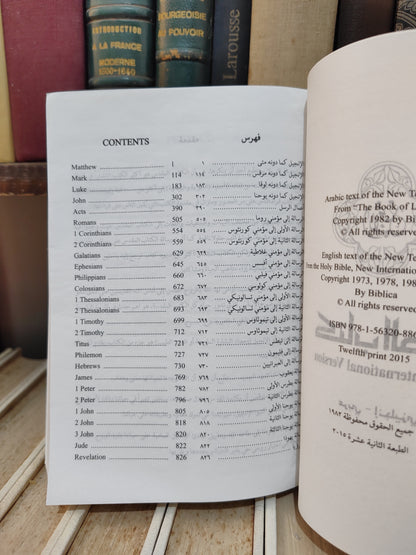 INTRODUCTION
A LA FRANCE
MODERNE
1500-1640
BOURGEOISIE
AU POUVOIR
Larousse
CONTENTS فهرس
Matthew 1 ١ الإنجيل كما دونه متى
Mark 114 ١١٤ الإنجيل كما دونه مرقس
Luke 183 ١٨٣ الإنجيل كما دونه لوقا
John 302 ٣٠٢ الإنجيل كما دونه يوحنا
Acts 390 ٣٩٠ أعمال الرسل
Romans 505 ٥٠٥ رسالة إلى مؤمني روما
1 Corinthians 554 ٥٥٤ الرسالة الأولى إلى مؤمني كورنثوس
2 Corinthians الرسالة الثانية إلى مؤمني كورنثوس
Galatians الرسالة إلى مؤمني غلاطية
Ephesians 660 ٦٦٠ الرسالة إلى مؤمني أفسس
Philippians الرسالة إلى مؤمني فيلبي
Colossians الرسالة إلى مؤمني كولوسي
1 Thessalonians الرسالة الأولى إلى مؤمني تسالونيكي
2 Thessalonians الرسالة الثانية إلى مؤمني تسالونيكي
1 Timothy 697 ٦٩٧ الرسالة الأولى إلى تيموثاوس
2 Timothy 712 ٧١٢ الرسالة الثانية إلى تيموثاوس
Titus الرسالة إلى تيطس
Philemon 727 ٧٢٧ الرسالة إلى فليمون
Hebrews الرسالة إلى العبرانيين
James 769 ٧٦٩ رسالة يعقوب
1 Peter 782 ٧٨٢ رسالة بطرس الأولى
2 Peter 796 ٧٩٦ رسالة بطرس الثانية
1 John 805 ٨٠٥ رسالة يوحنا الأولى
2 John 818 ٨١٨ رسالة يوحنا الثانية
3 John 820 ٨٢٠ رسالة يوحنا الثالثة
Jude 822 ٨٢٢ رسالة يهوذا
Revelation 826 ٨٢٦
Arabic text of the New Te
From "The Book of L
Copyright 1982 by Bi
© All rights reserve
English text of the New Te
from the Holy Bible, New Internation
Copyright 1973, 1978, 198
By Biblica
© All rights reserved
ISBN 978-1-56320-88
Twelfth print 2015
جميع الحقوق محفوظة ١٩٨٢
الطبعة الثانية عشرة ٢٠١٥